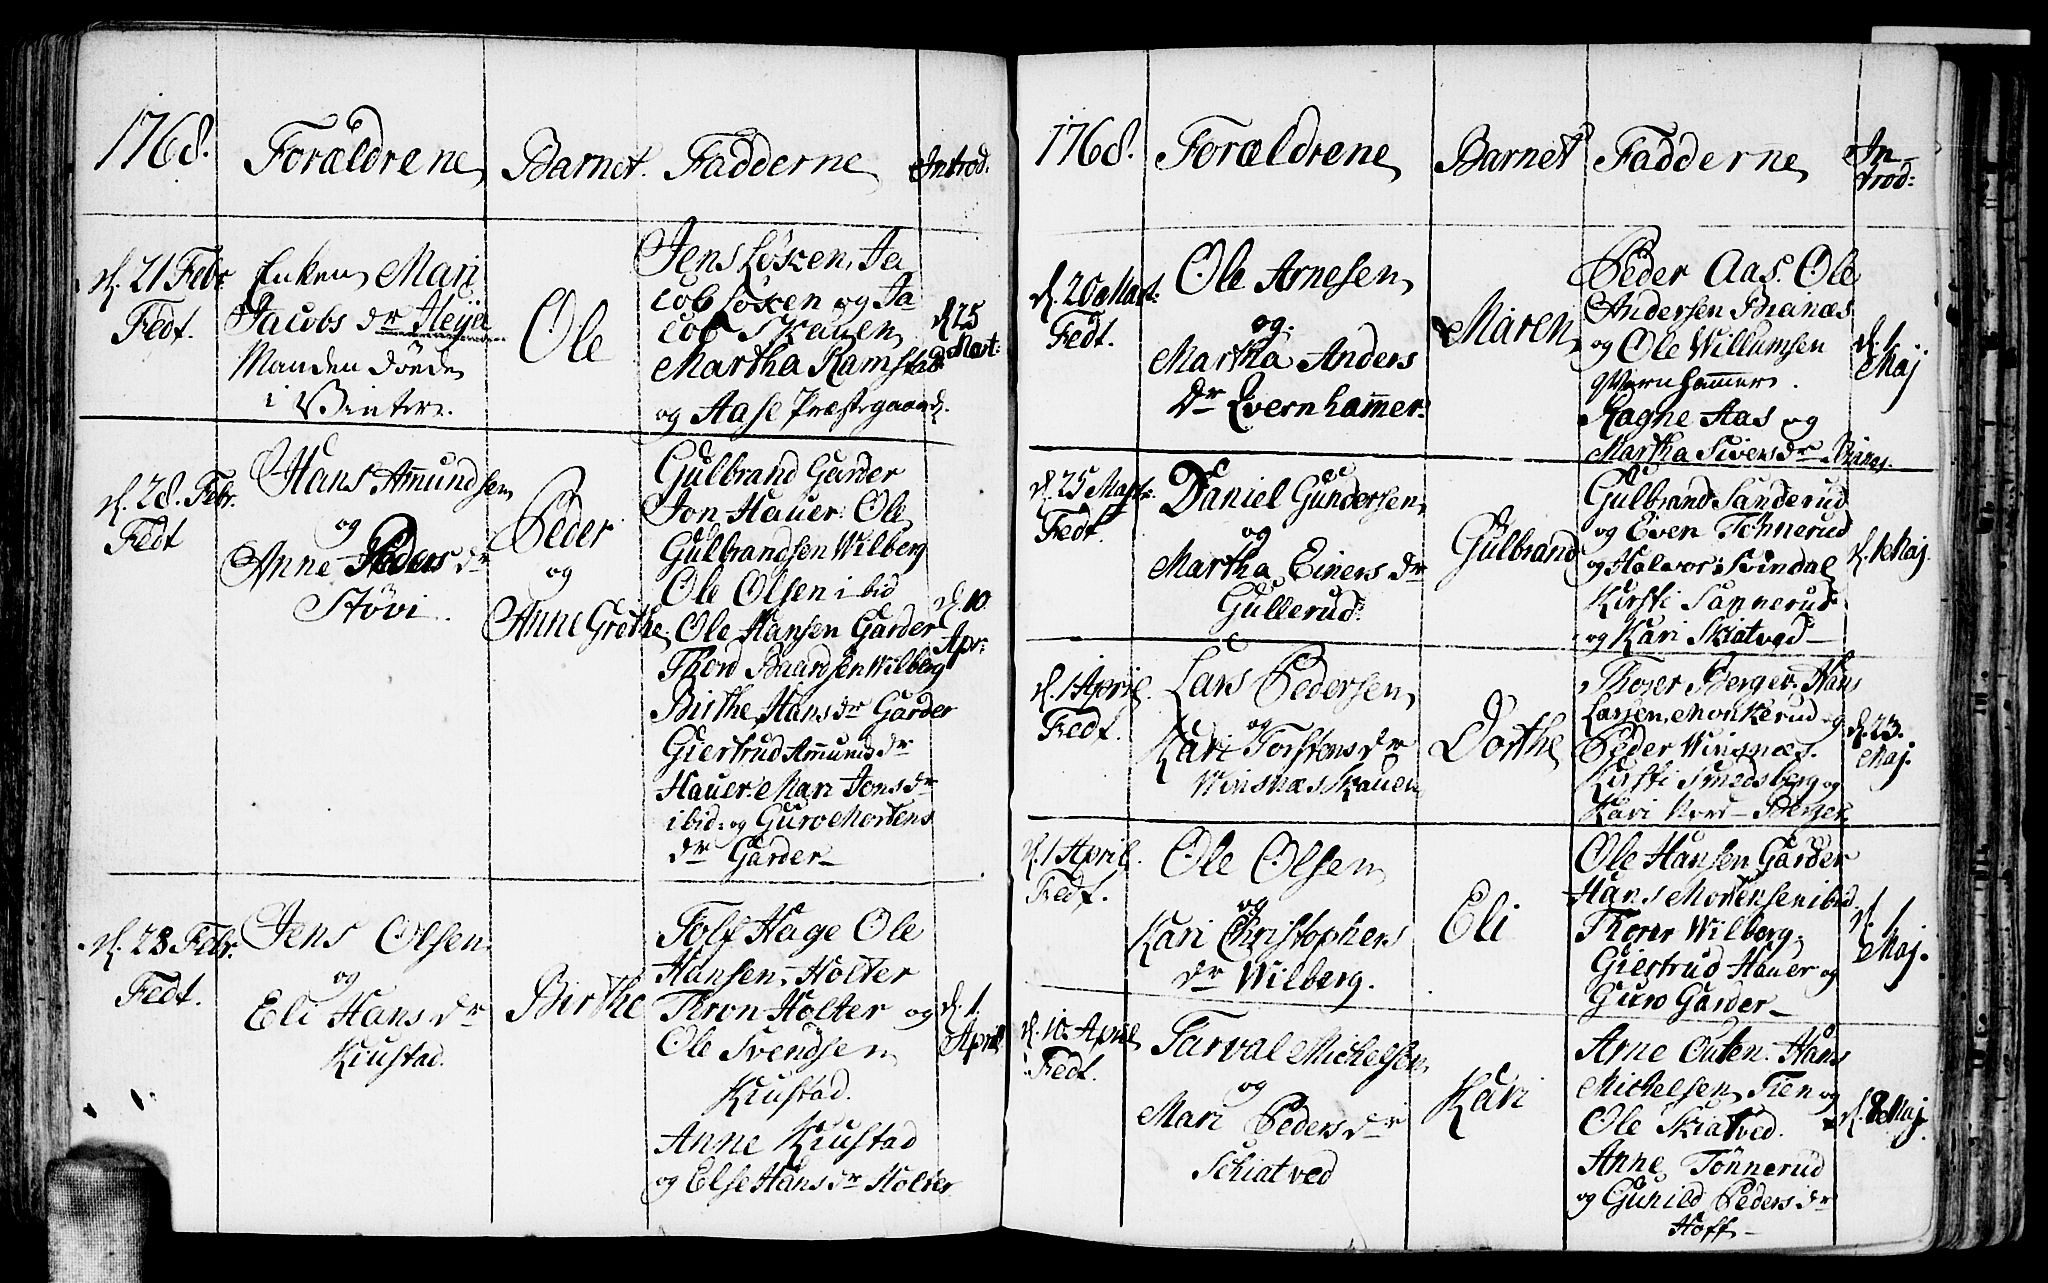 1768. Forældrene Barnet. Fadderne Introd.
d. 21 Febr
Fedt.
Enken Mari
Jacobs dr Heyer
Manden döde
i Vinter.
Ole
Jens Løken, Ja
cob Løken og Ja
cob Skauen
Martha Ramstad
og Aase Præstegaard.
d. 25
Mart:
d. 28. Febr.
Fedt
Hans Amundsen
og
Anne Peders dr
Støvi.
Peder
og
Anne Grethe
Gulbrand Garder
Jon Hauer. Ole
Gulbrandsen Wilberg
Ole Olsen ibid
Ole Hansen Garder
Thord Baardsen Wilberg
Birthe Hans dr Garder
Giertrud Amunds dr
Hauer. Mari Jons dr
ibid: og Guro Mortens
dr Garder
d. 10
Apr:
d. 28 Febr.
Fedt.
Jens Olsen
og
Eli Hans dr
Kiustad.
Birthe
Tolf Hage Ole
Hansen Holter
Thron Holter og
Ole Svendsen
Kiustad.
Anne Kiustad
og Else Hans dr Holter
d. 1.
April
1768. Forældrene Barnet Fadderne In
trod:
d. 20 Mart:
Fedt.
Ole Arnesen
og
Martha Anders
dr Qvernhammer.
Maren
Peder Aas. Ole
Andersen Branæs
og Ole Willumsen
Qvernhammer.
Ragne Aas og
Martha Sivers dr
d. 1
Maj
d. 25 Mart:
Fedt.
Daniel Gundersen
og
Martha Einers dr
Gullerud.
Gulbrand
Gulbrand Sanderud
og Even Tønnerud
og Halvor Svindal
Kirsti Sannerud
og Kari Skiatved
d. 1 Maj.
d. 1 April.
Fedt.
Lars Pedersen
og
Kari Torstens dr
Winsnæs Skauen
Dorthe
Thorer Berger. Hans
Larsen Monkerud og
Peder Winsnæs.
Kirsti Smedsberg og
Kari Nord-Berger
d. 23.
Maj.
d. 1 April.
Fedt.
Ole Olsen
og
Kari Christophers
dr Wilberg.
Eli
Ole Hansen Garder
Hans Mortensen ibid.
Thorer Wilberg.
Giertrud Hauer og
Guro Garder
d. 1
Maj.
d. 10. April
Fedt.
Tarval Michelsen
og
Mari Peders dr
Schiatved
Kari
Arne Outen. Hans
Michelsen Tien og
Ole Skiatved.
Anne Tönnerud
og Gunild Peders dr
Hoff
d. 8 Maj.